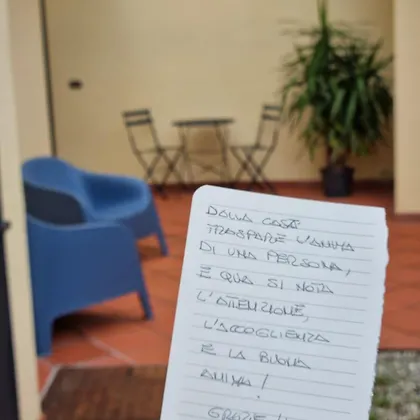 DALLA CASA
TRASPARE L'ANIMA
DI UNA PERSONA,
E QUA SI NOTA
L'ATTENZIONE,
L'ACCOGLIENZA
E LA BUONA
ANIMA!
GRAZIE